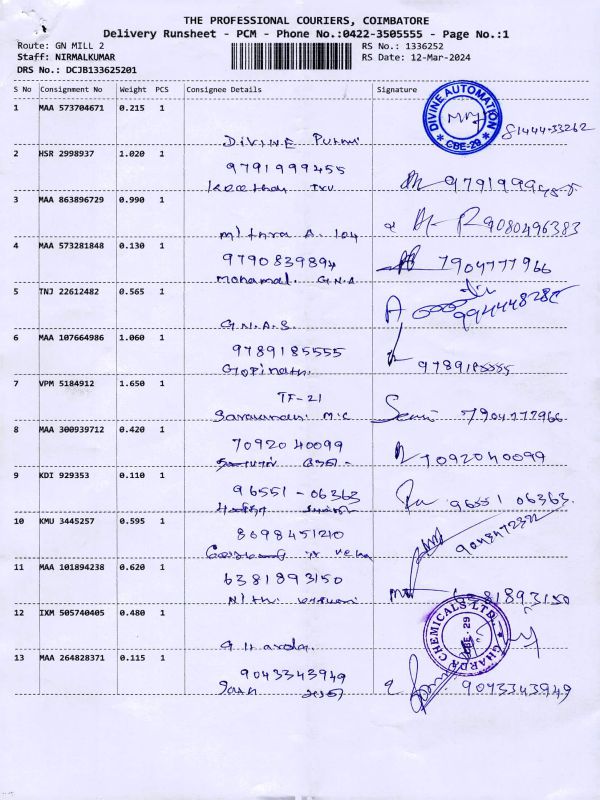 THE PROFESSIONAL COURIERS, COIMBATORE
Delivery Runsheet - PCM - Phone No.:0422-3505555 - Page No.:1
Route: GN MILL 2
RS No.: 1336252
Staff: NIRMALKUMAR
RS Date: 12-Mar-2024
DRS No.: DCJB133625201
S No Consignment No Weight PCS Consignee Details Signature
1 MAA 573704671 0.215 1
DIVINE AUTOMATION
* CBE-29 *
81444-33262
DIVINE
2 HSR 2998937 1.020 1
9791999455
3 MAA 863896729 0.990 1
9080496383
Mithra A. 104
4 MAA 573281848 0.130 1
9790839894 7904777966
Mohamal. G.N.A
5 TNJ 22612482 0.565 1
G.N.A.S.
6 MAA 107664986 1.060 1
9789185555 9789185555
Gopinath.
7 VPM 5184912 1.650 1
TF-21
Saravanan M.C 7904777966
8 MAA 300939712 0.420 1
7092040099 7092040099
9 KDI 929353 0.110 1
96551-06363 96551 06363
10 KMU 3445257 0.595 1
8698451210
11 MAA 101894238 0.620 1
6381893150 6381893150
Nithi
12 IXM 505740405 0.480 1
GHARDA CHEMICALS LTD.
CBE-29
Gharda.
13 MAA 264828371 0.115 1
9043343949 9043343949